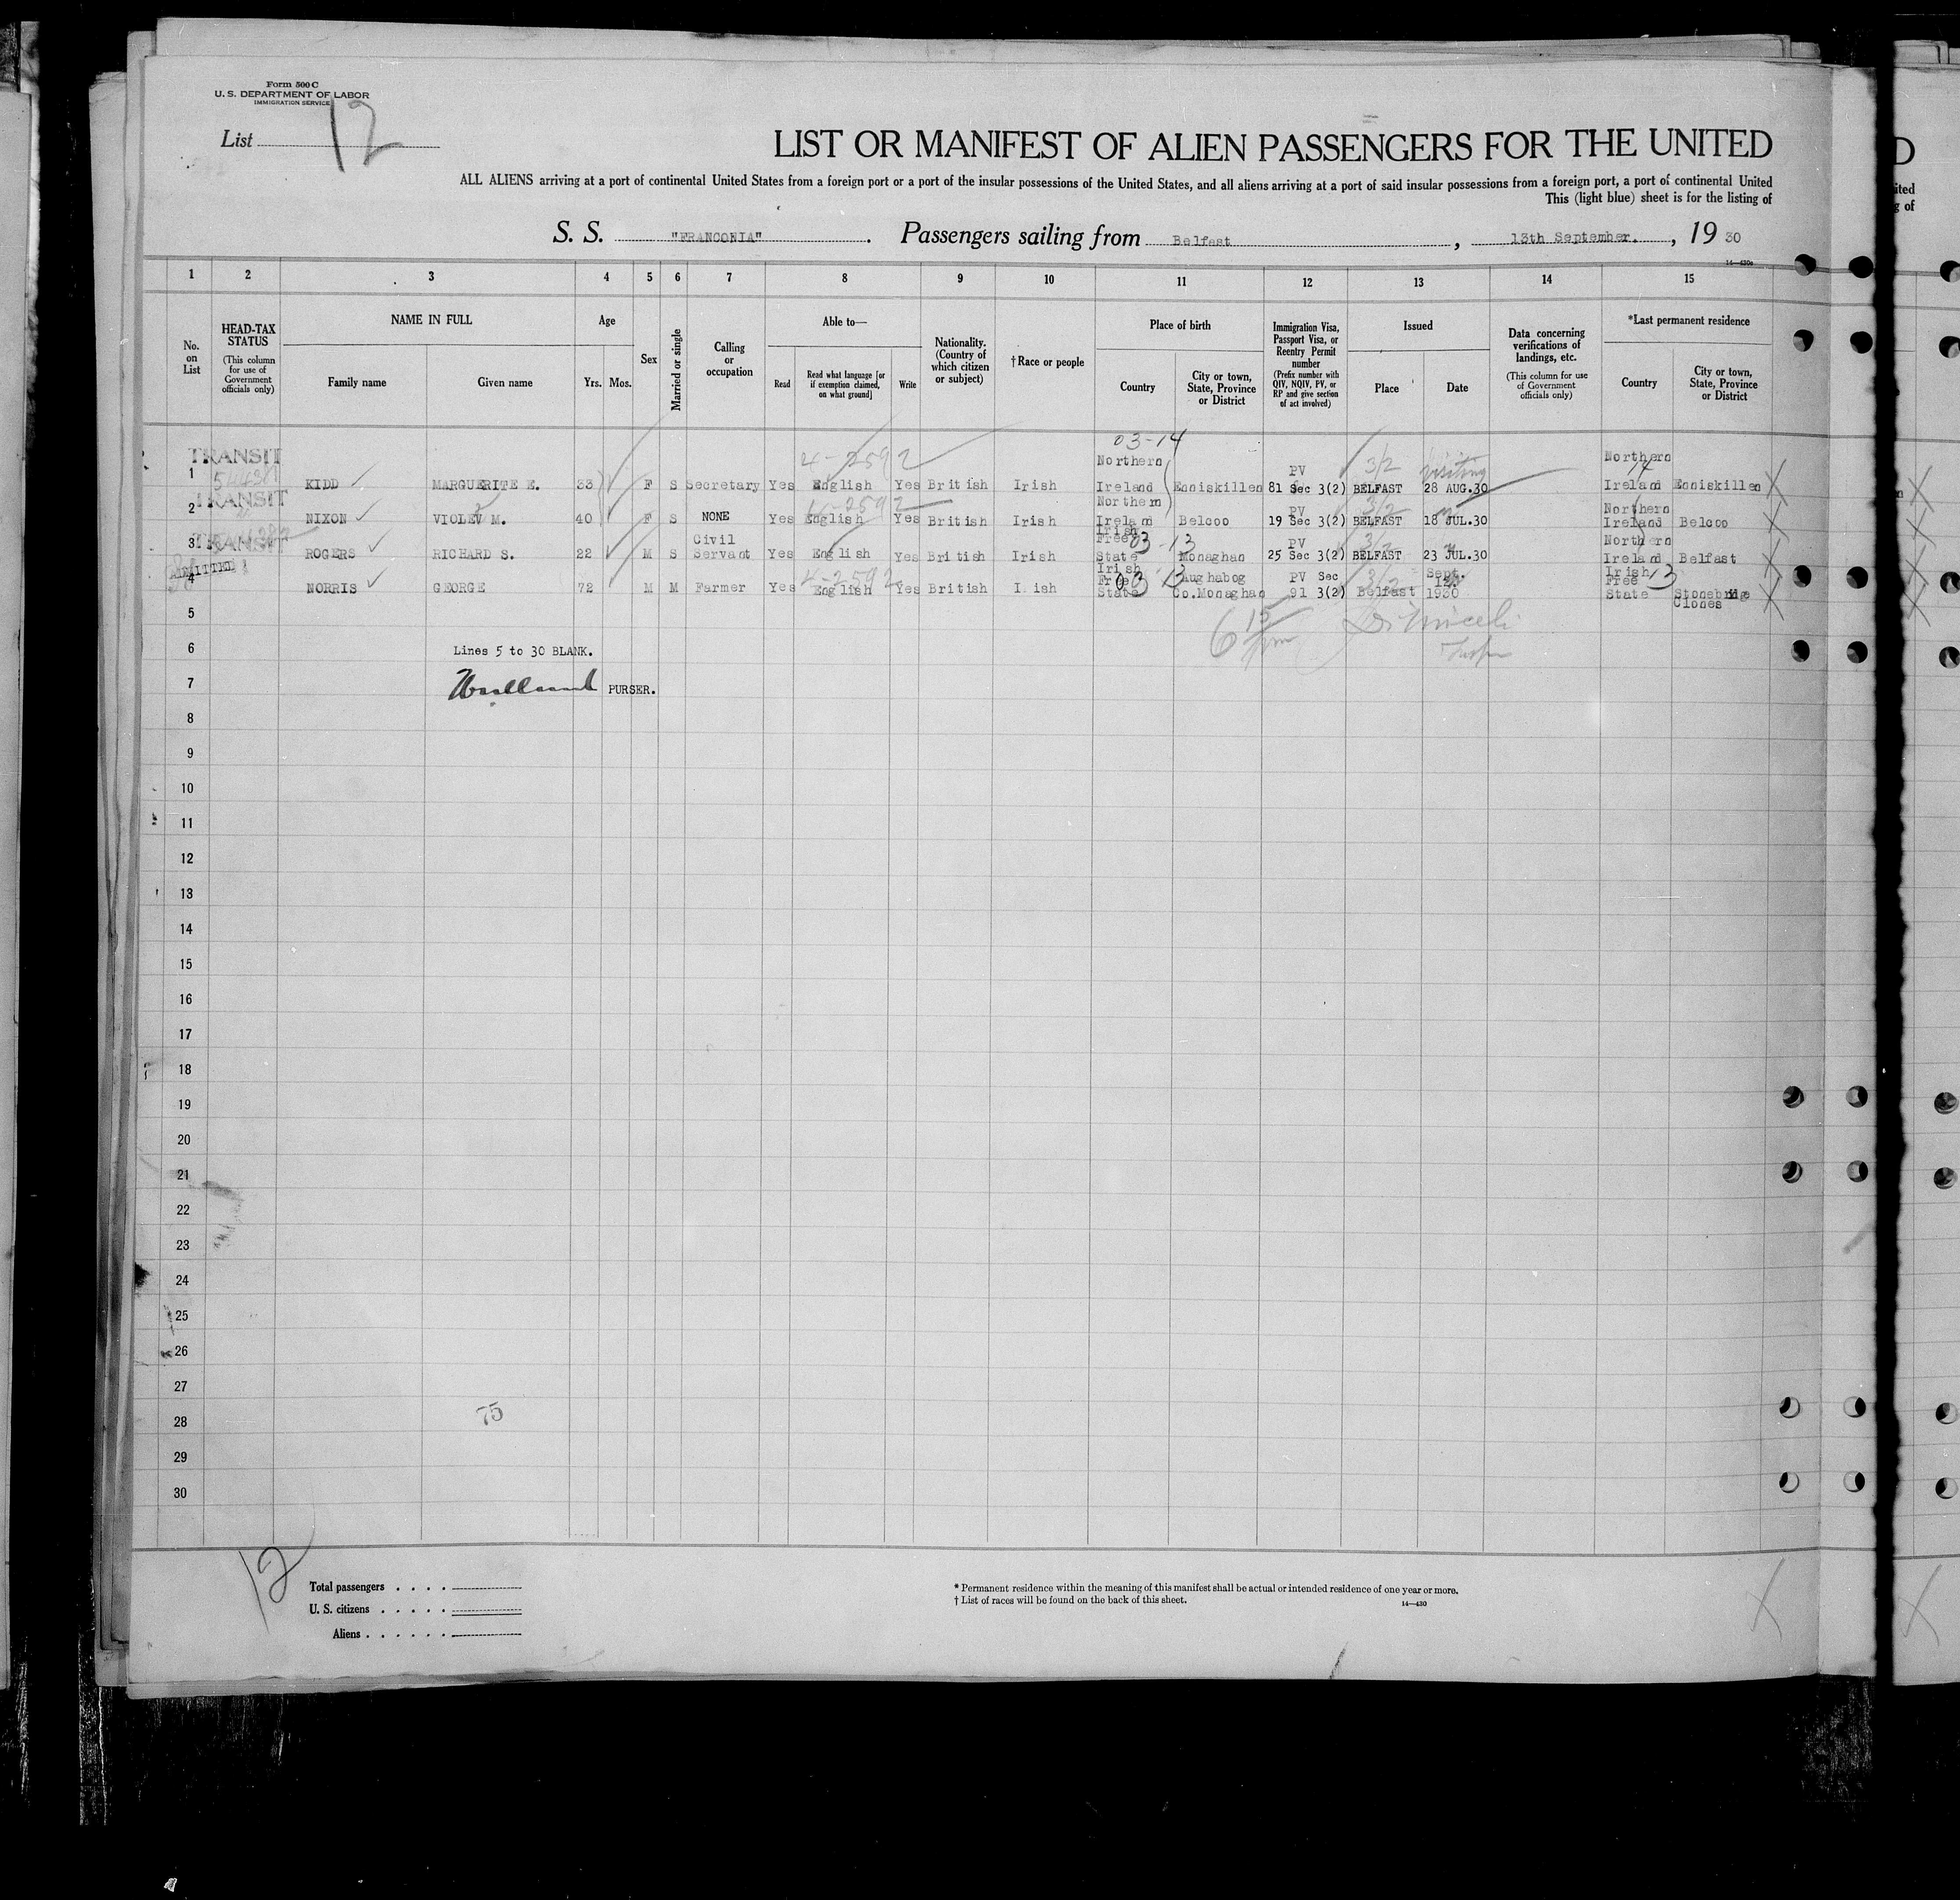 Form 500 C
U. S. DEPARTMENT OF LABOR
IMMIGRATION SERVICE
List 12
LIST OR MANIFEST OF ALIEN PASSENGERS FOR THE UNITED
ALL ALIENS arriving at a port of continental United States from a foreign port or a port of the insular possessions of the United States, and all aliens arriving at a port of said insular possessions from a foreign port, a port of continental United
This (light blue) sheet is for the listing of
S. S. "FRANCONIA". Passengers sailing from Belfast, 13th September., 19 30
14—430c
1 2 3 4 5 6 7 8 9 10 11 12 13 14 15
No. on List
HEAD-TAX STATUS (This column for use of Government officials only)
NAME IN FULL
Family name
Given name
Age
Yrs. Mos.
Sex
Married or single
Calling or occupation
Able to—
Read
Read what language [or if exemption claimed, on what ground]
Write
Nationality. (Country of which citizen or subject)
†Race or people
Place of birth
Country
City or town, State, Province or District
Immigration Visa, Passport Visa, or Reentry Permit number (Prefix number with QIV, NQIV, PV, or RP and give section of act involved)
Issued
Place
Date
Data concerning verifications of landings, etc. (This column for use of Government officials only)
*Last permanent residence
Country
City or town, State, Province or District
03-14
TRANSIT 4-2592 3/2 visiting 14
1 KIDD MARGUERITE E. 33 F S Secretary Yes English Yes British Irish Northern Ireland Enniskillen PV 81 Sec 3(2) BELFAST 28 AUG.30 Northern Ireland Enniskillen
TRANSIT 4-2592 3/2
2 NIXON VIOLEV M. 40 F S NONE Yes English Yes British Irish Northern Ireland Belcoo PV 19 Sec 3(2) BELFAST 18 JUL.30 Northern Ireland Belcoo
TRANSIT 03-13 3/2
3 ROGERS RICHARD S. 22 M S Civil Servant Yes English Yes British Irish Irish Free State Monaghan PV 25 Sec 3(2) BELFAST 23 JUL.30 Northern Ireland Belfast
ADMITTED 4-2592 03 13 3/2 13
4 NORRIS GEORGE 72 M M Farmer Yes English Yes British I.ish Irish Free State Aughabog Co.Monaghan PV Sec 91 3(2) Belfast Sept. 12. 1930 Irish Free State Stonebridge Clones
5
6 15 pm
6 Lines 5 to 30 BLANK.
7 PURSER.
8
9
10
11
12
13
14
15
16
17
18
19
20
21
22
23
24
25
26
27
28 75
29
30
12
Total passengers
U. S. citizens
Aliens
* Permanent residence within the meaning of this manifest shall be actual or intended residence of one year or more.
† List of races will be found on the back of this sheet.
14—430